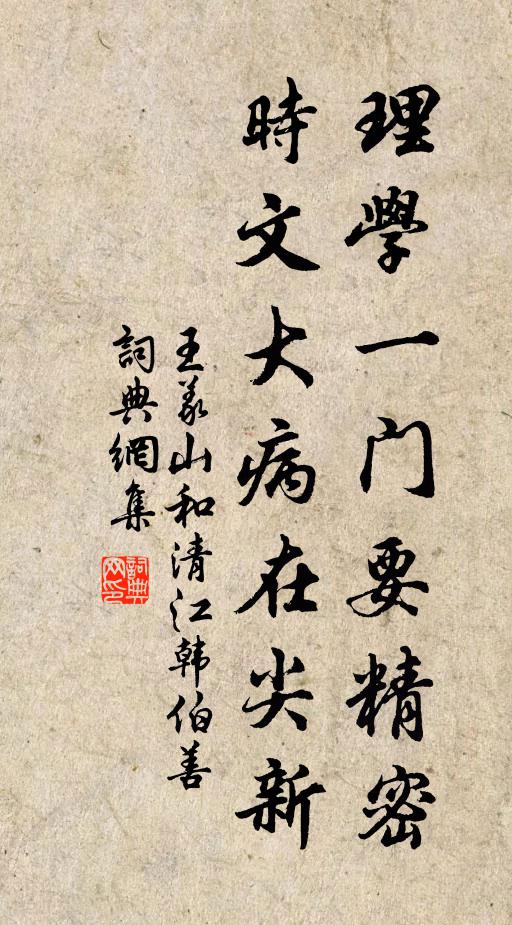 理學一門要精密
時文大病在尖新
王義山和清江韩伯善
詞典網集
詞典網印